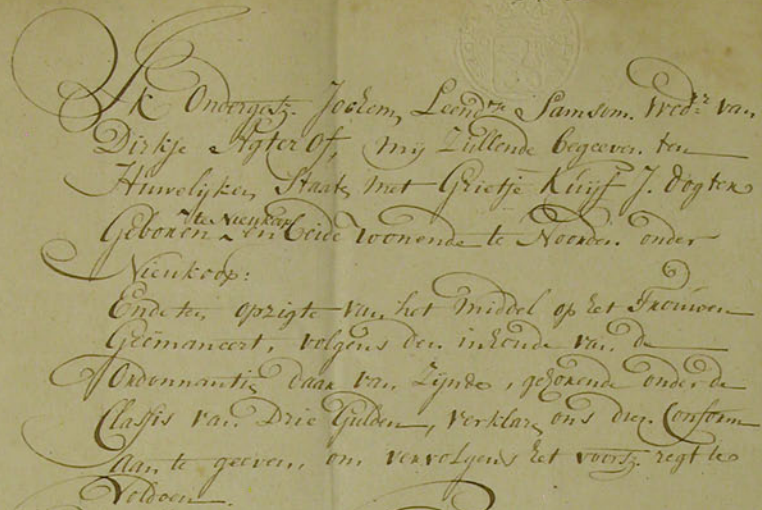 Ik Ondergetz. Jochem Leendrtz Samsom. Wedr. van
Dirkje Agter Of, my Zullende begeeven ten
Huwelijken Staat, met Grietje Kuijf J. dogter
Geboren te Nieukoop en beide woonende te Noorden onder
Nieukoop:
Ende ten opzigte van het middel op het Trouwen
Geëmaneert, volgens den inhoude van de
Ordonnantie daar van Zijnde, gehorende onder de
Classis van Drie Gulden, verklare ons dien Conform
aan te geeven, om vervolgens het voorsz. regt te
Voldoen.